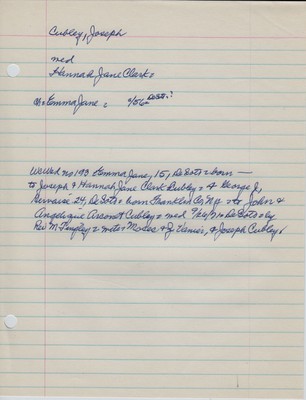 Cubley, Joseph
med
Hannah Jane Clark
Ch = Emma Jane c 1856 DeSoto?
WisWed no 193 Emma Jane, 15, DeSoto born —
to Joseph & Hannah Jane Clark Cubley & George J,
24, DeSoto born Franklin Co NY to John &
Angelique Cubley med 7/26/71 DeSoto by
Rev M wits Moses & J & Joseph Cubley